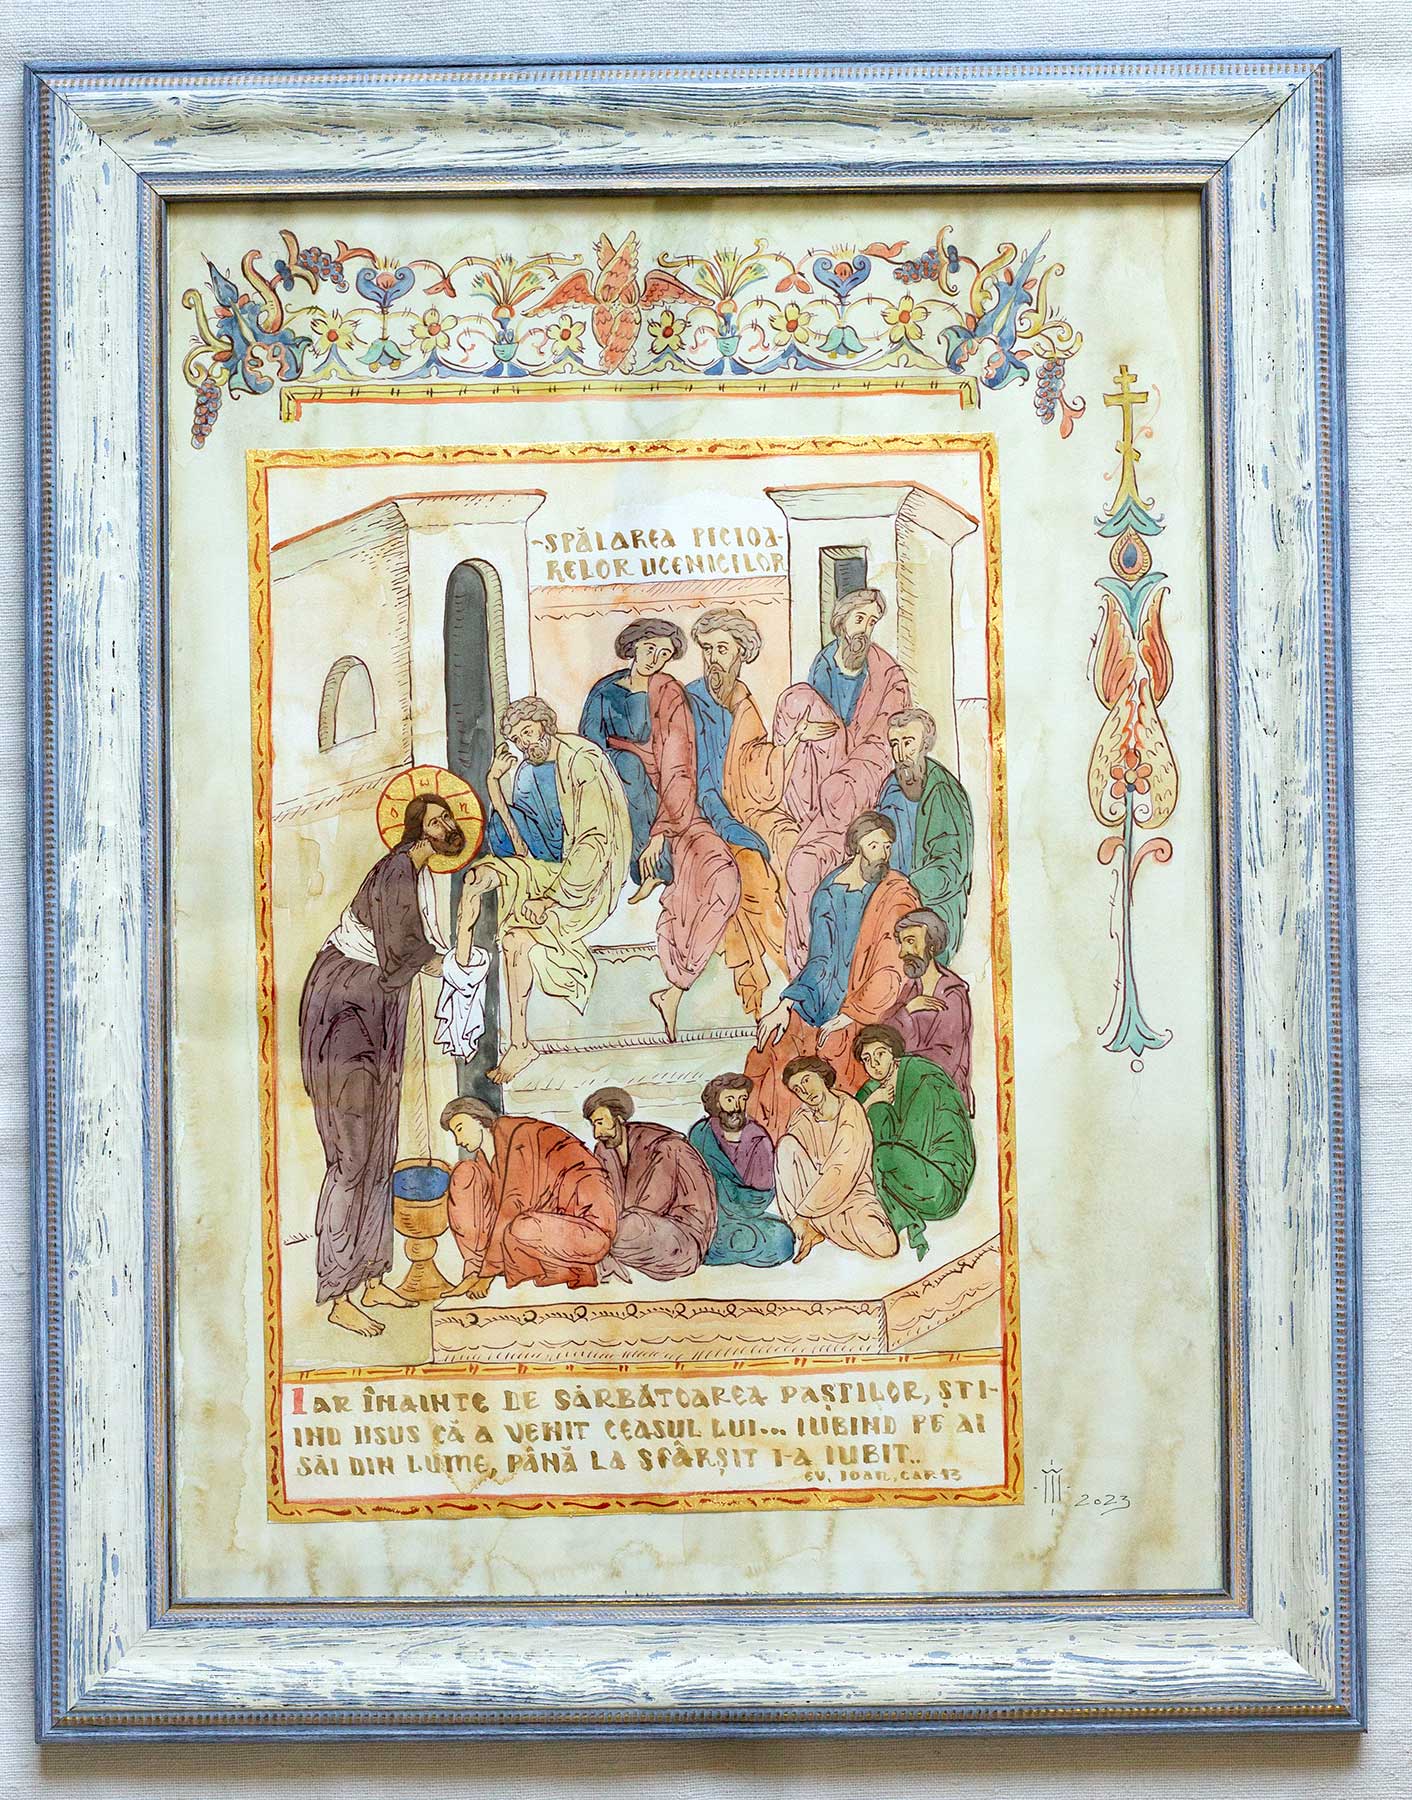 SPĂLAREA PICIOA-
RELOR UCENICILOR
Ο Ω Η
IAR ÎNAINTE DE SĂRBĂTOAREA PAȘTILOR, ȘTI-
IND IISUS CĂ A VENIT CEASUL LUI... IUBIND PE AI
SĂI DIN LUME, PÂNĂ LA SFÂRȘIT I-A IUBIT..
EV. IOAN, CAP 13
2023